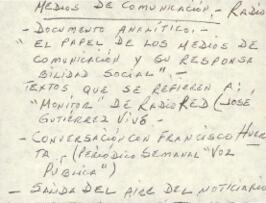 MEDIOS DE COMUNICACION - RADIO
- DOCUMENTO ANALÍTICO: -
"EL PAPEL DE LOS MEDIOS DE
COMUNICACIÓN Y SU RESPONSA
BILIDAD SOCIAL" -
TEXTOS QUE SE REFIEREN A:
"MONITOR" DE RADIO RED (JOSE
GUTIERREZ VIVÓ -
- CONVERSACIÓN CON FRANCISCO HUER
TA, (PERIÓDICO SEMANAL "VOZ
PÚBLICA")
- SALIDA DEL AIRE DEL NOTICIARIO